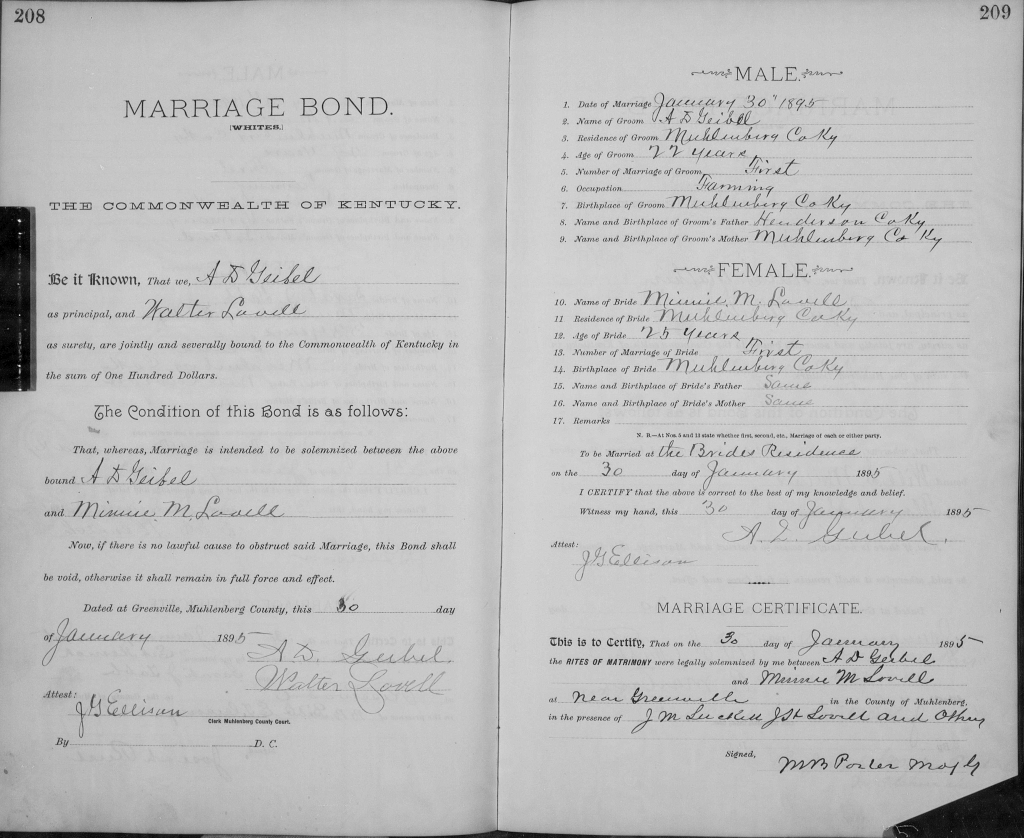 208
MARRIAGE BOND.
[WHITES.]
THE COMMONWEALTH OF KENTUCKY.
Be it Known, That we, A D Geibel
as principal, and Walter Lovell
as surety, are jointly and severally bound to the Commonwealth of Kentucky in
the sum of One Hundred Dollars.
The Condition of this Bond is as follows:
That, whereas, Marriage is intended to be solemnized between the above
bound A D Geibel
and Minnie M. Lovell
Now, if there is no lawful cause to obstruct said Marriage, this Bond shall
be void, otherwise it shall remain in full force and effect.
Dated at Greenville, Muhlenberg County, this 30 day
of January 1895
A. D. Geibel.
Walter Lovell
Attest:
J G Ellison
Clerk Muhlenberg County Court.
By D. C.
209
MALE.
1. Date of Marriage January 30" 1895
2. Name of Groom A D Geibel
3. Residence of Groom Muhlenberg Co Ky
4. Age of Groom 22 years
5. Number of Marriage of Groom First
6. Occupation Farming
7. Birthplace of Groom Muhlenberg Co Ky
8. Name and Birthplace of Groom's Father Henderson Co Ky
9. Name and Birthplace of Groom's Mother Muhlenberg Co Ky
FEMALE.
10. Name of Bride Minnie M. Lovell
11 Residence of Bride Muhlenberg Co Ky
12. Age of Bride 25 years
13. Number of Marriage of Bride First
14. Birthplace of Bride Muhlenberg Co Ky
15. Name and Birthplace of Bride's Father Same
16. Name and Birthplace of Bride's Mother Same
17. Remarks
N. B.—At Nos. 5 and 13 state whether first, second, etc., Marriage of each or either party.
To be Married at the Brides Residence
on the 30 day of January 1895
I CERTIFY that the above is correct to the best of my knowledge and belief.
Witness my hand, this 30 day of January 1895
A. D. Geibel.
Attest:
J G Ellison
MARRIAGE CERTIFICATE.
This is to Certify, That on the 30 day of January 1895
the RITES OF MATRIMONY were legally solemnized by me between A D Geibel
and Minnie M Lovell
at near Greenville in the County of Muhlenberg,
in the presence of J M Luckett J H Lovell and Others
Signed,
M B Porter